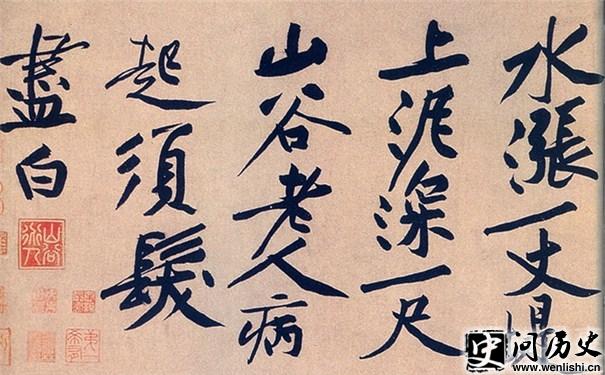 水漲一丈
上泥深一尺
山谷老人病
起須髮
盡白
山谷道人
问历史
www.wenlishi.cn